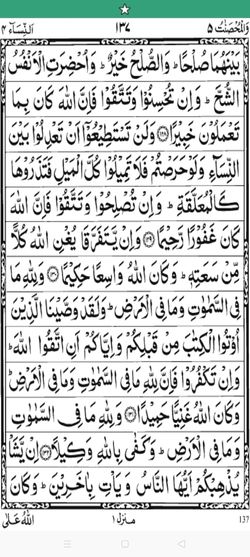 وَالْمُحْصَنٰتُ ٥ ١٣٧ اَلنِّسَآء ٤
بَيْنَهُمَا صُلْحًا ؕ وَالصُّلْحُ خَيْرٌ ؕ وَاُحْضِرَتِ الْاَنْفُسُ
الشُّحَّ ؕ وَاِنْ تُحْسِنُوْا وَتَتَّقُوْا فَاِنَّ اللّٰهَ كَانَ بِمَا
تَعْمَلُوْنَ خَبِيْرًا ﴿١٢٨﴾ وَلَنْ تَسْتَطِيْعُوْٓا اَنْ تَعْدِلُوْا بَيْنَ
النِّسَآءِ وَلَوْ حَرَصْتُمْ فَلَا تَمِيْلُوْا كُلَّ الْمَيْلِ فَتَذَرُوْهَا
كَالْمُعَلَّقَةِ ؕ وَاِنْ تُصْلِحُوْا وَتَتَّقُوْا فَاِنَّ اللّٰهَ
كَانَ غَفُوْرًا رَّحِيْمًا ﴿١٢٩﴾ وَاِنْ يَّتَفَرَّقَا يُغْنِ اللّٰهُ كُلًّا
مِّنْ سَعَتِهٖ ؕ وَكَانَ اللّٰهُ وَاسِعًا حَكِيْمًا ﴿١٣٠﴾ وَلِلّٰهِ مَا
فِى السَّمٰوٰتِ وَمَا فِى الْاَرْضِ ؕ وَلَقَدْ وَصَّيْنَا الَّذِيْنَ
اُوْتُوا الْكِتٰبَ مِنْ قَبْلِكُمْ وَاِيَّاكُمْ اَنِ اتَّقُوا اللّٰهَ ؕ
وَاِنْ تَكْفُرُوْا فَاِنَّ لِلّٰهِ مَا فِى السَّمٰوٰتِ وَمَا فِى الْاَرْضِ ؕ
وَكَانَ اللّٰهُ غَنِيًّا حَمِيْدًا ﴿١٣١﴾ وَلِلّٰهِ مَا فِى السَّمٰوٰتِ
وَمَا فِى الْاَرْضِ ؕ وَكَفٰى بِاللّٰهِ وَكِيْلًا ﴿١٣٢﴾ اِنْ يَّشَاْ
يُذْهِبْكُمْ اَيُّهَا النَّاسُ وَيَاْتِ بِاٰخَرِيْنَ ؕ وَكَانَ
اللّٰهُ عَلٰى منزل ١ 137